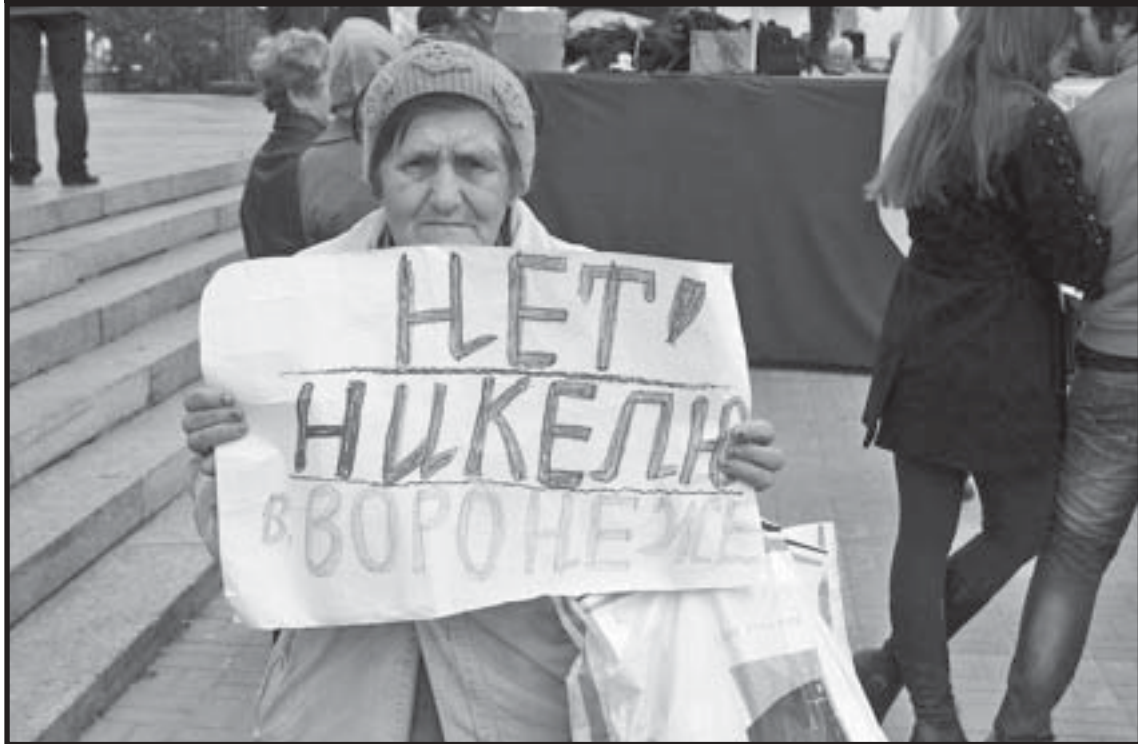 НЕТ!
НИКЕЛЮ
В ВОРОНЕЖЕ